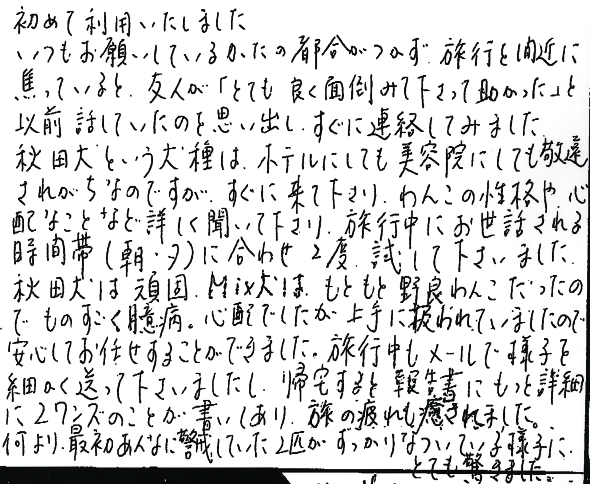 初めて利用いたしました
いつもお願いしているかたの都合がつかず 旅行を間近に
焦っていると、友人が「とても 良く面倒みて下さって助かった」と
以前 話していたのを思い出し、すぐに連絡してみました。
秋田犬という犬種は、ホテルにしても美容院にしても敬遠
されがちなのですが、すぐに来て下さり、わんこの性格や、心
配なことなど詳しく聞いて下さり、旅行中にお世話される
時間帯(朝・夕)に合わせ2度、試して下さいました。
秋田犬は頑固、Mix犬は、もともと野良わんこだったの
で ものすごく臆病。心配でしたが上手に扱われていましたので
安心してお任せすることができました。旅行中もメールで様子を
細かく送って下さいましたし、帰宅すると報告書にもっと詳細
に2ワンズのことが書いてあり、旅の疲れも癒されました。
何より、最初あんなに警戒していた2匹がすっかりなついている様子に、
とても驚きました。